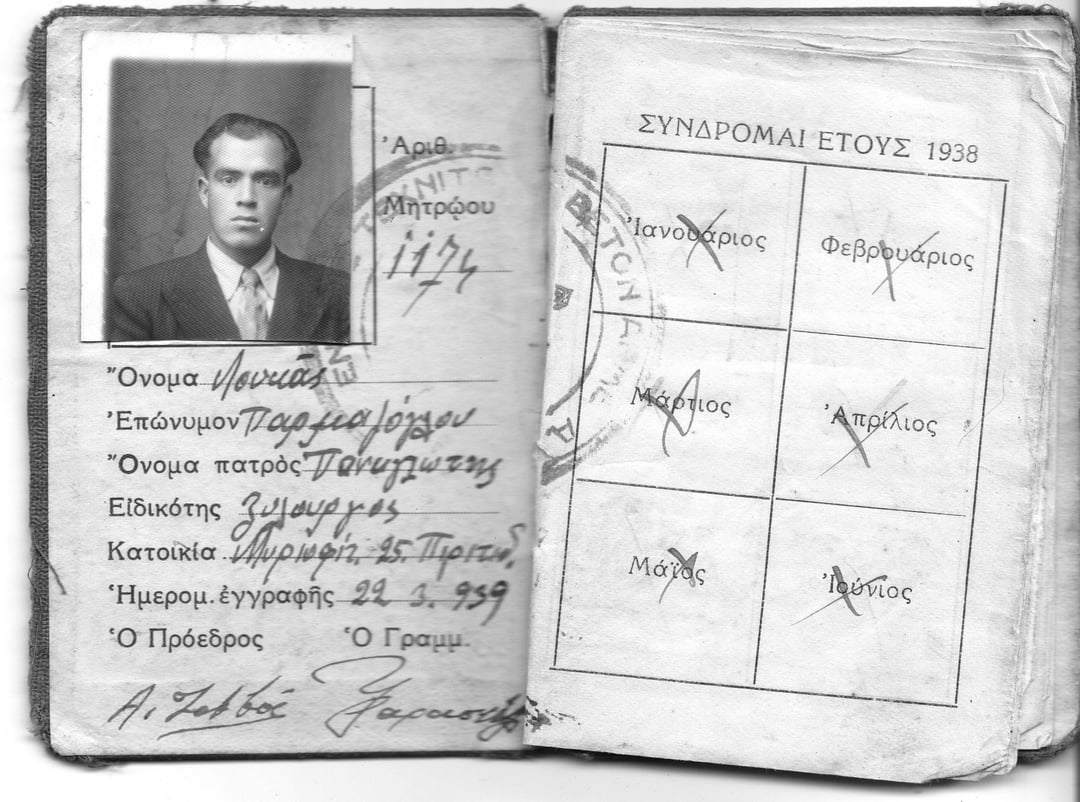 Ἀριθ.
Μητρῴου
1174
Ὄνομα Λουκᾶς
Ἐπώνυμον Παρμαξόγλου
Ὄνομα πατρὸς Παναγιώτης
Εἰδικότης ξυλουργος
Κατοικία 25
Ἡμερομ. ἐγγραφῆς 22 3. 939
Ὁ Πρόεδρος Ὁ Γραμμ.
ΣΥΝΔΡΟΜΑΙ ΕΤΟΥΣ 1938
Ἰανουάριος Φεβρουάριος
Μάρτιος Ἀπρίλιος
Μάϊος Ἰούνιος
ΒΕΤΟΝ